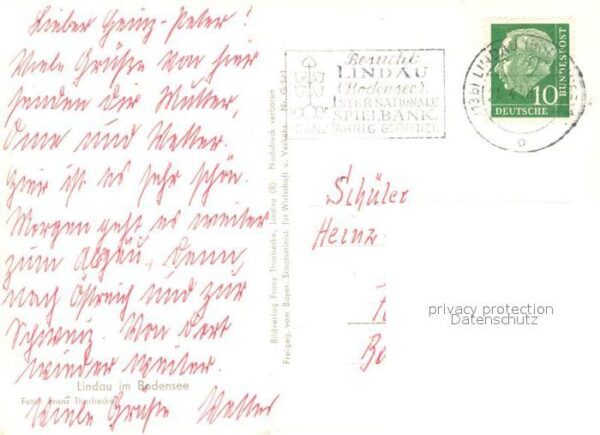 Lieber Heinz-Peter!
Viele Grüße von hier
senden dir Mutter,
Oma und Vetter.
Hier ist es sehr schön.
Morgen geht es weiter
zum Algäu, dann,
nach Östreich und zur
Schweiz. Von dort
wieder weiter.
Viele Grüße Vetter
Lindau im Bodensee
Foto: Franz Thorbecke
Bildverlag Franz Thorbecke, Lindau (B). Nachdruck verboten
Freigeg. vom Bayer. Staatsminist. für Wirtschaft u. Verkehr Nr. G 5/
Besucht
LINDAU
(Bodensee)
INTERNATIONALE
SPIELBANK
GANZJÄHRIG GEÖFFNET
(13b) LINDAU
10
DEUTSCHE
BUNDESPOST
Schüler
Heinz
privacy protection
Datenschutz